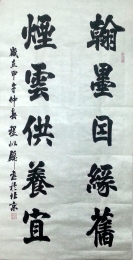 翰墨因緣舊
煙雲供養宜
歲在甲午仲春